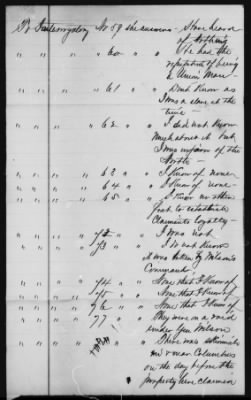 To Interrogatory No 59 she answers - I have heard
nothing
" " " 60 " " He had the
reputation of being
a Union Man -
" " " 61 " " Dont Know as
I was a slave at the
time -
" " " 62 " " I did not Know
much about it but
I was in favor of the
North -
" " " 63 " " I Know of none -
" " " 64 " " I Know of none -
" " " 65 " " I Know no other
fact to establish
Claimants loyalty -
" " " 72 " " I was not
" " " 73 " " I do not Know
it was taken by Wilson's
Command
" " " 74 " " None that I Know of
" " " 75 " " None that I Know of
" " " 76 " " None that I Know of
" " " 77 " " They were on a raid
under Gen Wilson
There was skirmish
near Columbus
on the day before the
property here claimed